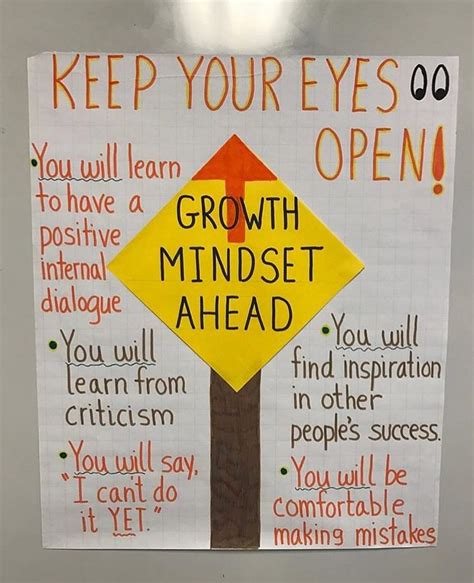 KEEP YOUR EYES
OPEN!
You will learn
to have a
positive
internal
dialogue
You will
learn from
criticism
You will say,
"I can't do
it YET."
GROWTH
MINDSET
AHEAD
You will
find inspiration
in other
people's success.
You will be
comfortable
making mistakes